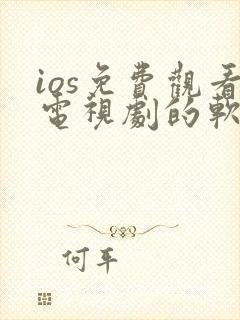 ios免費觀看
電視劇的軟
何平